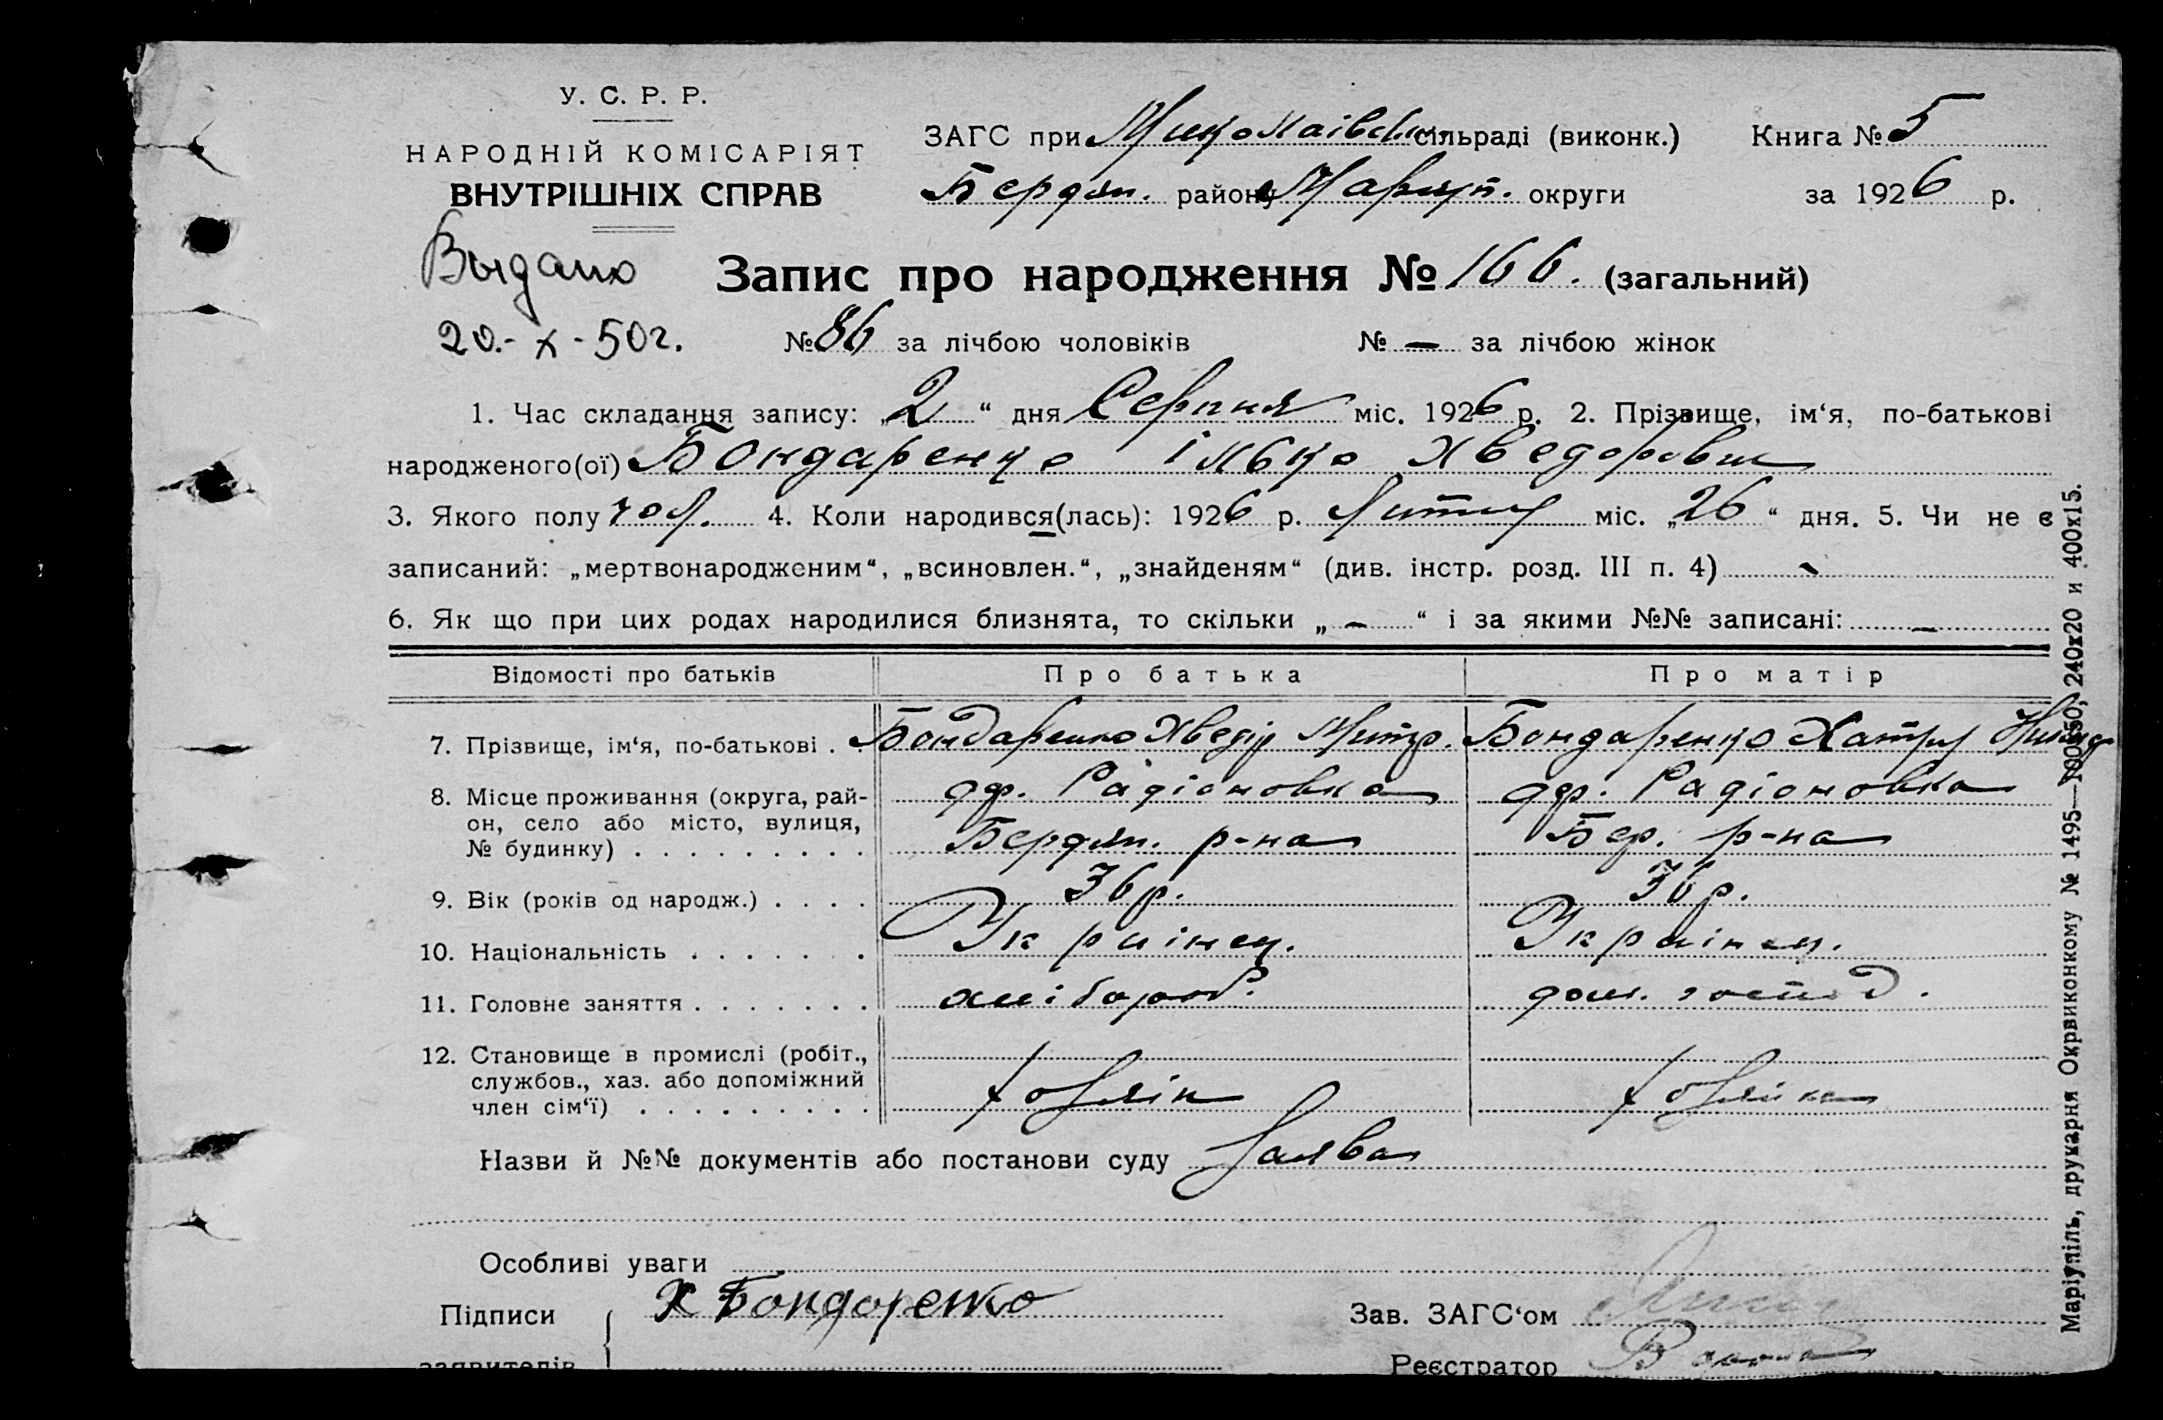 У. С. Р. Р.
НАРОДНІЙ КОМІСАРІЯТ
ВНУТРІШНІХ СПРАВ
ЗАГС при Миколаївськ. сільраді (виконк.) Книга № 5
Бердян. району Маріуп. округи за 1926 р.
Выдано
20.-X-50г.
Запис про народження № 166. (загальний)
№ 86 за лічбою чоловіків № — за лічбою жінок
1. Час складання запису: „2“ дня Серпня міс. 1926 р. 2. Прізвище, ім‘я, по-батькові
народженого(ої) Бондаренко Ілько Хведорович
3. Якого полу чол. 4. Коли народився(лась): 1926 р. Липня міс. „26“ дня. 5. Чи не є
записаний: „мертвонародженим“, „всиновлен.“, „знайденям“ (див. інстр. розд. III п. 4) -
6. Як що при цих родах народилися близнята, то скільки „ — “ і за якими №№ записані: —
Відомості про батьків Про батька Про матір
7. Прізвище, ім‘я, по-батькові . . Бондаренко Хведір Митр. Бондаренко
8. Місце проживання (округа, рай-
он, село або місто, вулиця,
№ будинку) . . . . . . . . .
др. Радіоновка др. Радіоновка
Бердян. р-на Бер. р-на
9. Вік (років од народж.) . . . . 36 р. 36 р.
10. Національність . . . . . . . Українец. Українец.
11. Головне заняття . . . . . . . хлібороб. дом. господ.
12. Становище в промислі (робіт.,
службов., хаз. або допоміжний
член сім‘ї) . . . . . . . . .
Назви й №№ документів або постанови суду Заява
Особливі уваги
Підписи Х Бондаренко Зав. ЗАГС‘ом
заявителів Реєстратор
Маріупіль, друкарня Окрвиконкому № 1495—100х50, 240х20 и 400х15.